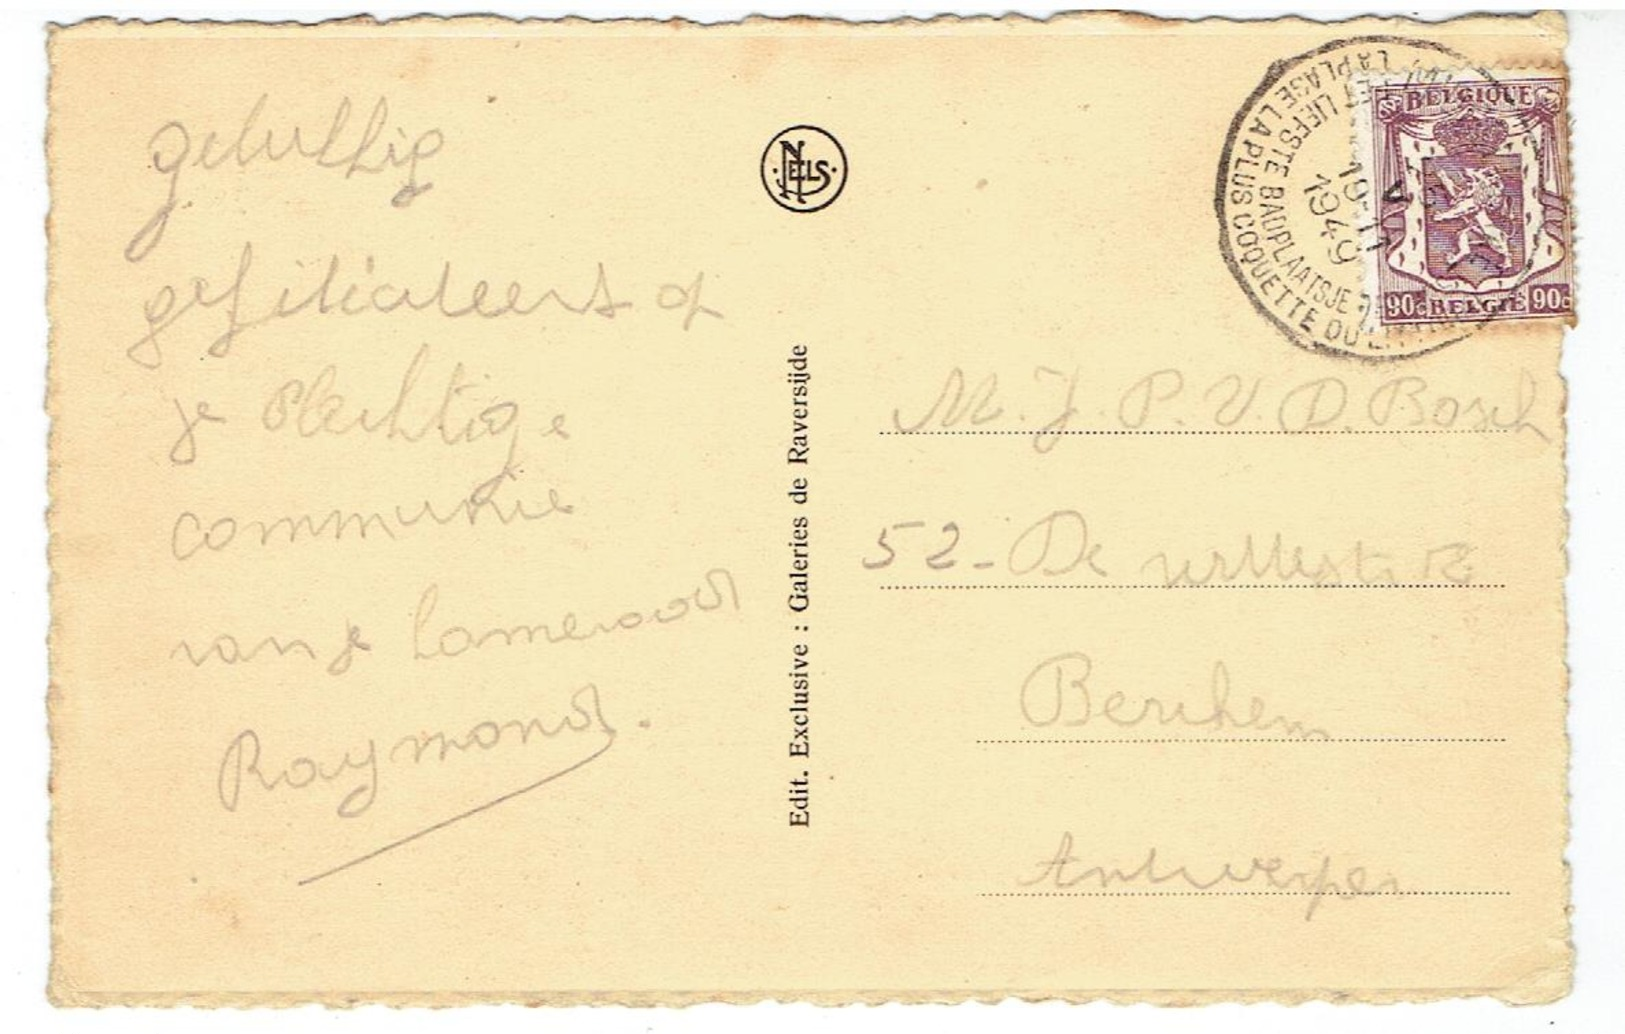 gelukkig
gefiliciteert op
je plechtige
communie
van je kameraad
Raymond.
NELS
Edit. Exclusive : Galeries de Raversijde
LIEFSTE BADPLAATSJE
LA PLAGE LA PLUS COQUETTE DU
19-11
1949
BELGIQUE
90c BELGIË 90c
M. J. P. V. D. Bosch
52 - De
Berchem
Antwerpen